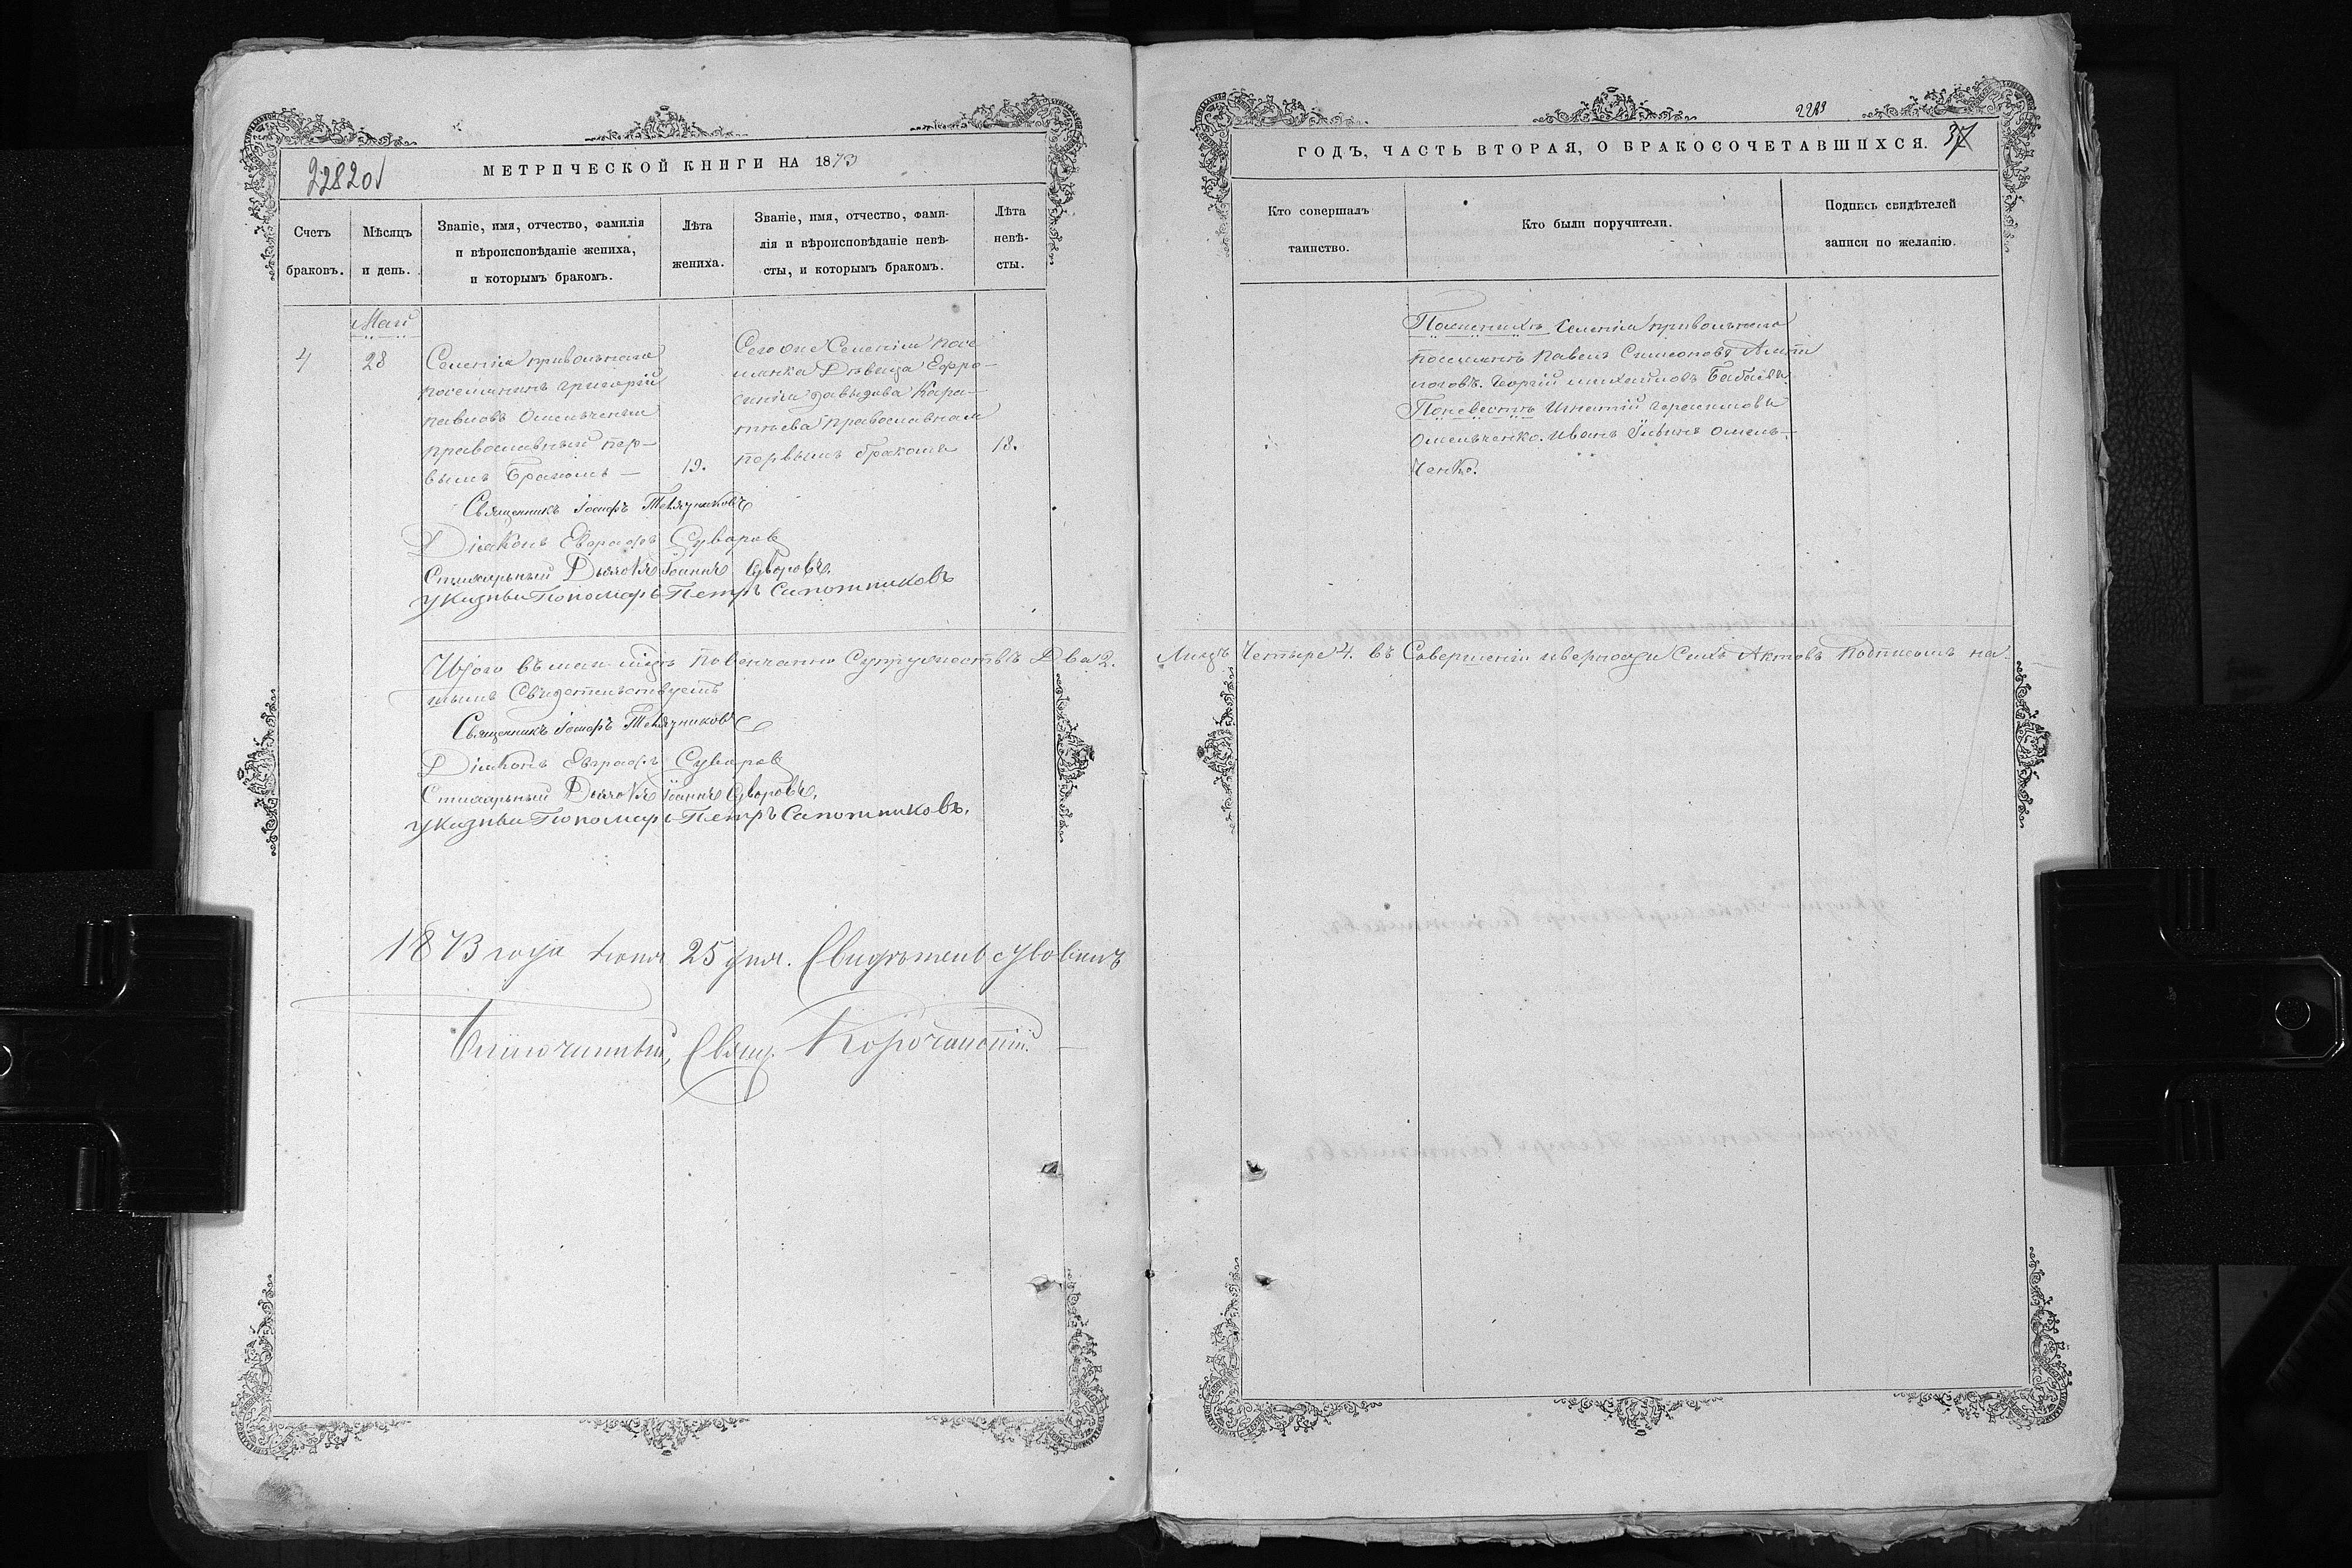 2282об
МЕТРИЧЕСКОЙ КНИГИ НА 1873
Счетъ
браковъ.
Мѣсяцъ
и день.
Званіе, имя, отчество, фамилія
и вѣроисповѣданіе жениха,
и которымъ бракомъ.
Лѣта
жениха.
Званіе, имя, отчество, фами-
лія и вѣроисповѣданіе невѣ-
сты, и которымъ бракомъ.
Лѣта
невѣ-
сты.
Май
4
28
Селенія привольнаго
поселянинъ григорій
павловъ Омельченко
православный пер-
вымъ бракомъ —
19.
Сего же Селенія посе-
лянка Дѣвица Ефро-
синія давыдова Кара-
православная
первымъ бракомъ
18.
Священникъ Іосифъ
Діаконъ Евграфъ Суваров
Стихарный Дьячокъ Іоаннъ Суворовъ.
указный Пономарь Петръ Сапожниковъ
Итого въ мае м-цѣ повенчанно Супружествъ Два 2.
тымъ Свидетельствуемъ
Священникъ Іосифъ
Діаконъ Евграфъ Суваров
Стихарный Дьячокъ Іоаннъ Суворовъ.
указный Пономарь Петръ Сапожниковъ.
1873 года Іюня 25 дня. Свидѣтельствовалъ
Благочинный, Свящ.
2283
ГОДЪ, ЧАСТЬ ВТОРАЯ, О БРАКОСОЧЕТАВШИХСЯ. 37
Кто совершалъ
таинство.
Кто были поручители.
Подпись свидѣтелей
записи по желанію.
По женихѣ Селенія привольнаго
поселяне павелъ Симеоновъ
Георгій михайловъ Бабаевъ.
По невестѣ Игнатій герасимовъ
Омельченко. иванъ Ильинъ омель-
ченко.
Лицъ Четыре 4. въ Совершеніи и верности Сихъ Актовъ подписомъ на-